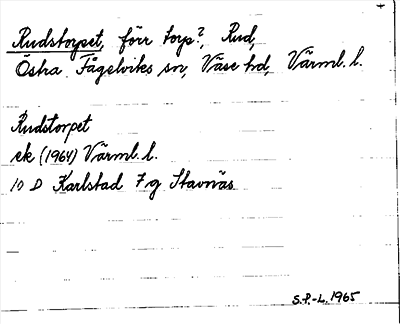 Rudstorpet, förr torp?, Rud,
Östra Fågelviks sn, Väse hd, Värml. l.
Rudstorpet
ek (1964) Värml. l.
10 D Karlstad 7 g Stavnäs
S.P.-L. 1965